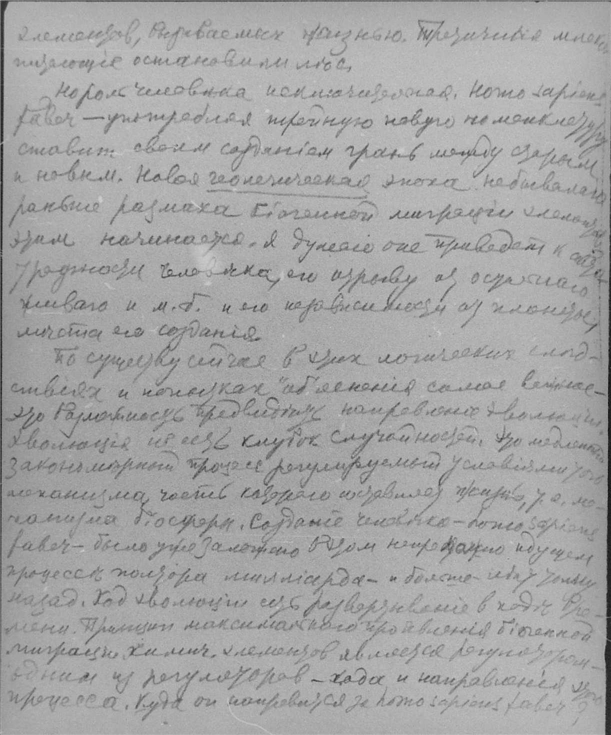 элементов, вызываемых жизнью. Третичныя млеко
питающiе остановились.
Но роль человѣка исключительная. Homo sapiens
faber — употребляя новую номенклатуру
ставит своим созданiем грань между старым
и новым. Новая геологическая эпоха небывалаго
раньше размаха бiогенной миграцiи элементов
этим начинается. Я думаю она приведет к
человѣка, его отрыву от остальнаго
живаго и м. б. и его независимости от планеты,
мѣста его созданiя.
По существу сейчас в этих логических слѣд-
ствiях и попытках "объясненiя самое важное —
это возможность предвидѣть направленiе эволюцiи.
Эволюцiя не есть клубок случайностей. Это медленный
закономѣрный процесс регулируемый условiями того
механизма, часть котораго составляет жизнь, т. е. ме-
ханизма бiосферы. Созданiе человѣка — homo sapiens
faber — было уже заложено в этом непреложно идущем
процессѣ полтора миллiарда — и болѣе — лѣт тому
назад. Ход эволюцiи есть развертыванiе в ходѣ вре-
мени. Принцип максимальнаго проявленiя бiогенной
миграцiи химич. элементов является регулятором —
одним из регуляторов — хода и направленiя этого
процесса. Куда он направится за homo sapiens faber?